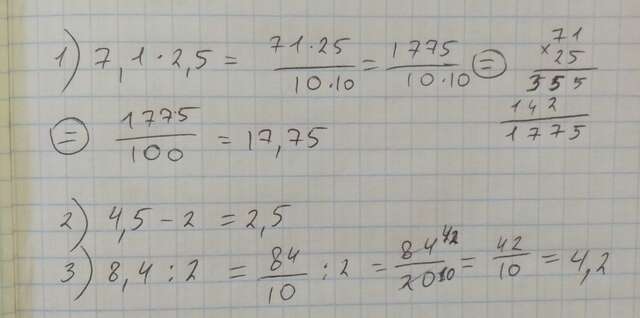 1) 7,1 · 2,5 = 71·25/10·10 = 1775/10·10 =
71
×25
355
142
1775
= 1775/100 = 17,75
2) 4,5 - 2 = 2,5
3) 8,4 : 2 = 84/10 : 2 = 84 42/20 10 = 42/10 = 4,2